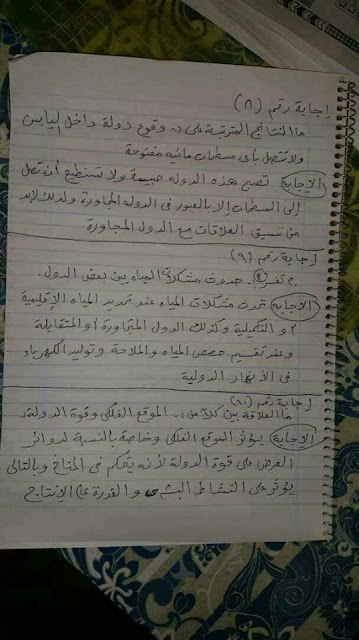 إجابة رقم (٨)
ما النتائج المترتبة على :- وقوع دولة داخل اليابس
ولا تتصل بأى مسطحات مائيه مفتوحة
الإجابة تصبح هذه الدوله حبيسة ولا تستطيع أن تصل
إلى المسطحات إلا بالعبور فى الدوله المجاورة ولذلك لابد
من تنسيق العلاقات مع الدول المجاورة
إجابة رقم (٩)
بم تفسر :- حدوث مشكلات المياه بين بعض الدول.
الاجابة تحدث مشكلات المياه عند تحديد المياه الإقليمية
او التكميلية وكذلك الدول المتجاورة او المتقابلة
وعند تقسيم حصص المياه والملاحة وتوليد الكهرباء
فى الأنهار الدولية
إجابة رقم (١٠)
ما العلاقة بين كلا من :- الموقع الفلكى وقوة الدولة
الاجابة يؤثر الموقع الفلكى وخاصة بالنسبة لدوائر
العرض على قوة الدولة لأنه يتحكم فى المناخ وبالتالى
يؤثر على النشاط البشرى والقدرة على الإنتاج